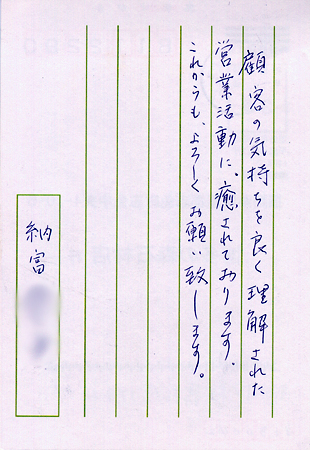 顧客の気持ちを良く理解された
営業活動に、癒されております。
これからも、よろしくお願い致します。
納富